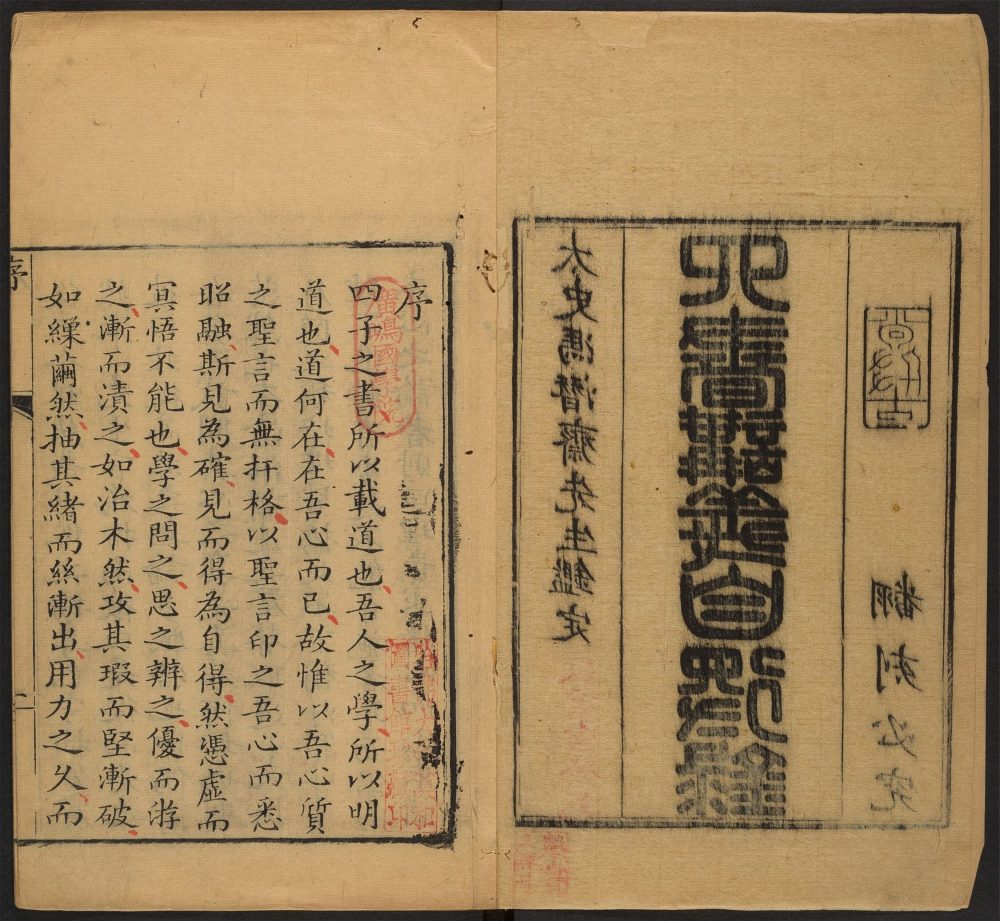 翻刻必究
太史馮潛齋先生鑑定
序
四子之書所以載道也吾人之學所以明
道也道何在在吾心而已故惟以吾心質
之聖言而無扞格以聖言印之吾心而悉
昭融斯見為確見而得為自得然憑虛而
冥悟不能也學之問之思之辨之優而游
之漸而漬之如治木然攻其瑕而堅漸破
如繅繭然抽其緒而絲漸出用力之久而
序
一